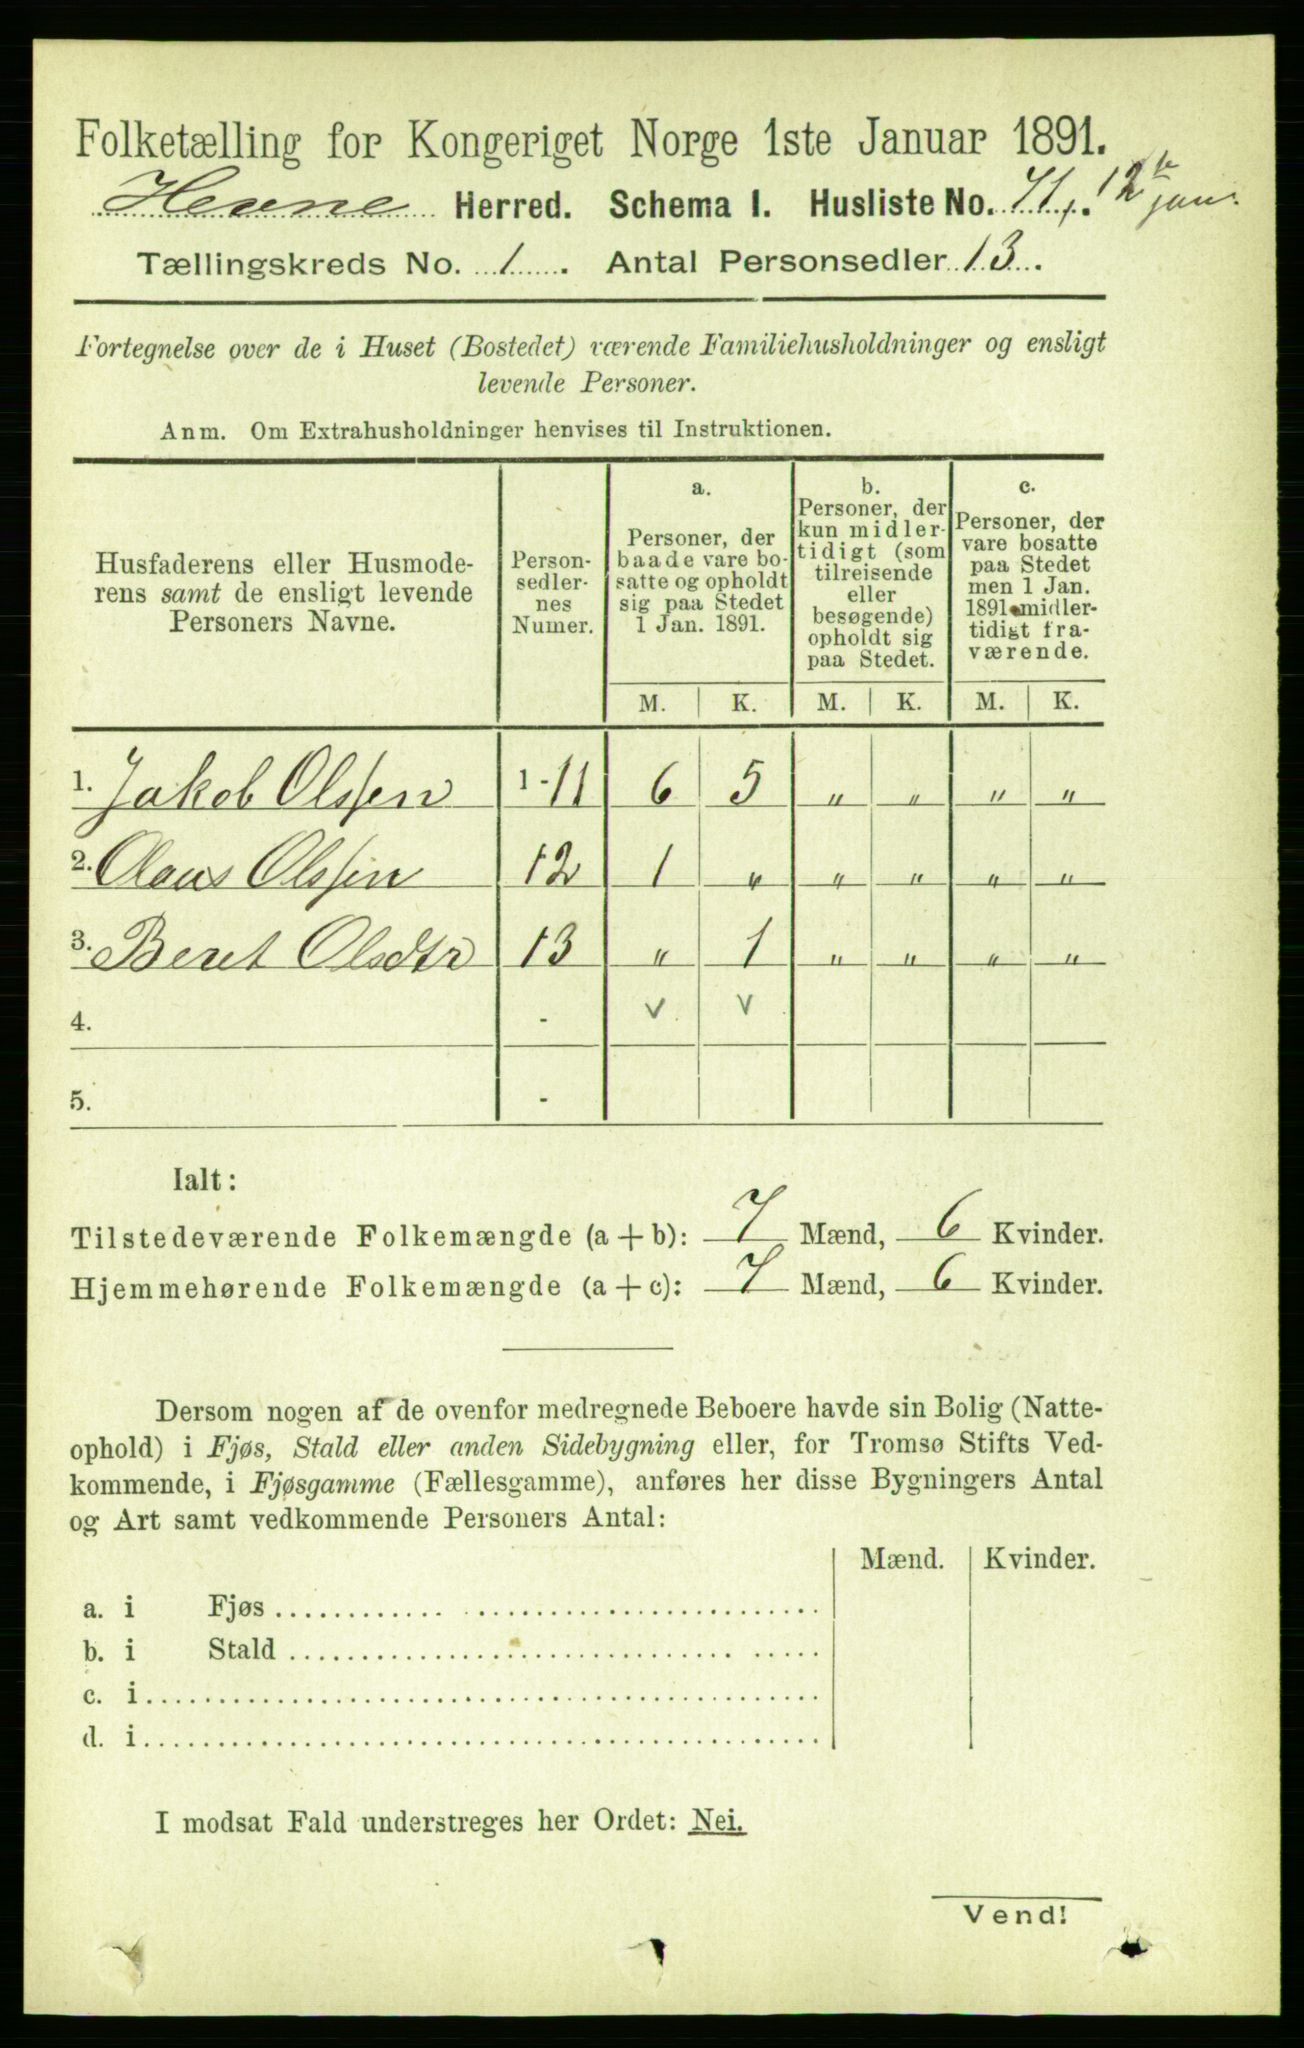 Folketælling for Kongeriget Norge 1ste Januar 1891.
Hevne Herred. Schema I. Husliste No. 71. 12te jan.
Tællingskreds No. 1. Antal Personsedler 13.
Fortegnelse over de i Huset (Bostedet) værende Familiehusholdninger og ensligt
levende Personer.
Anm. Om Extrahusholdninger henvises til Instruktionen.
Husfaderens eller Husmode-
rens samt de ensligt levende
Personers Navne.
Person-
sedler-
nes
Numer.
a.
Personer, der
baade vare bo-
satte og opholdt
sig paa Stedet
1 Jan. 1891.
b.
Personer, der
kun midler-
tidigt (som
tilreisende
eller
besøgende)
opholdt sig
paa Stedet.
c.
Personer, der
vare bosatte
paa Stedet
men 1 Jan.
1891 midler-
tidigt fra-
værende.
M. K. M. K. M. K.
1. Jakob Olssen 1-11 6 5 " " " "
2. Claus Olssen 12 1 " " " " "
3. Beret Olsdtr 13 " 1 " " " "
4. - v v
5. -
Ialt:
Tilstedeværende Folkemængde (a + b): 7 Mænd, 6 Kvinder.
Hjemmehørende Folkemængde (a + c): 7 Mænd, 6 Kvinder.
Dersom nogen af de ovenfor medregnede Beboere havde sin Bolig (Natte-
ophold) i Fjøs, Stald eller anden Sidebygning eller, for Tromsø Stifts Ved-
kommende, i Fjøsgamme (Fællesgamme), anføres her disse Bygningers Antal
og Art samt vedkommende Personers Antal:
Mænd. Kvinder.
a. i Fjøs
b. i Stald
c. i
d. i
I modsat Fald understreges her Ordet: Nei.
Vend!